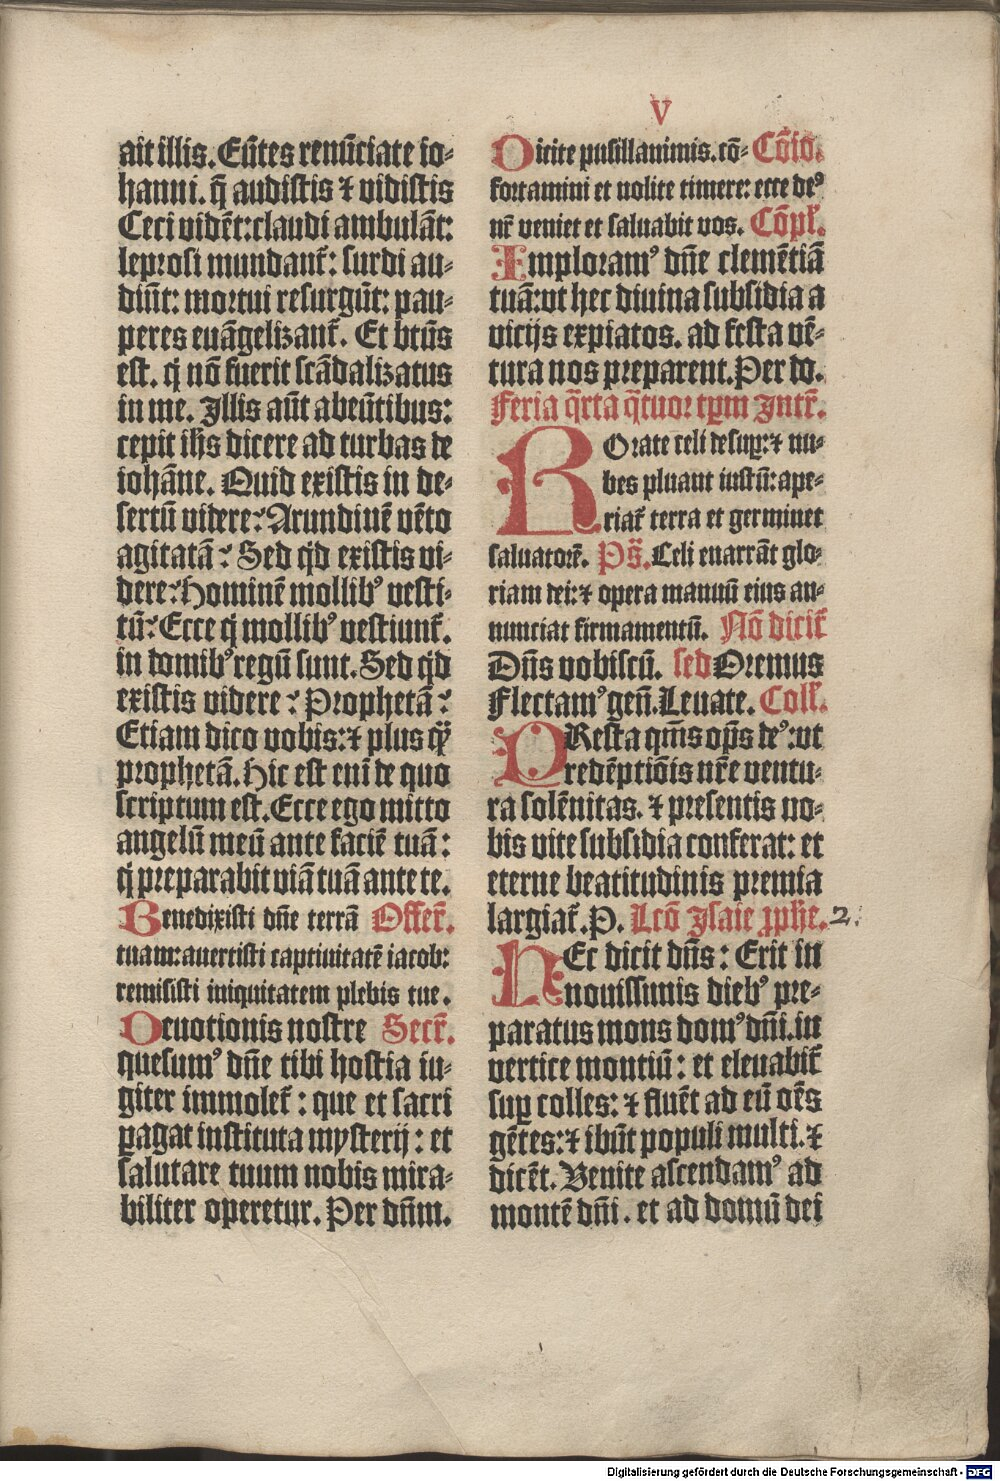 V
ait illis. Eūtes renūciate io-
hanni. q̄ audistis ⁊ vidistis
Ceci vidēt: claudi ambulāt:
leprosi mundant᷑: surdi au-
diūt: mortui resurgūt: pau-
peres euāgelizant᷑. Et btūs
est. q̇ nō fuerit scādalizatus
in me. Illis aūt abeūtibus:
cepit ihs dicere ad turbas de
iohāne. Quid existis in de-
sertū videre? Arundinē vēto
agitatā? Sed qd existis vi-
dere? Hominē mollibꝰ vesti-
tū? Ecce q̇ mollibꝰ vestiunt᷑.
in domibꝰ regū sunt. Sed qd
existis videre? Prophetā?
Etiam dico vobis: ⁊ plus q̄
prophetā. Hic est enī de quo
scriptum est. Ecce ego mitto
angelū meū ante faciē tuā:
q̇ preparabit viā tuā ante te.
Benedixisti dn̄e terrā Offer̄.
tuam: auertisti captiuitatē iacob:
remisisti iniquitatem plebis tue.
Deuotionis nostre Secr̄.
quesumꝰ dn̄e tibi hostia iu-
giter immolet᷑: que et sacri
ꝑagat instituta mysterij: et
salutare tuum nobis mira-
biliter operetur. Per dn̄m.
Dicite pusillanimis. cō- Cōīo.
fortamini et nolite timere: ecce deꝰ
nr̄ veniet et saluabit vos. Cōpl̄.
Imploramꝰ dn̄e clemētiā
tuā: vt hec diuina subsidia a
vicijs expiatos. ad festa vē-
tura nos preparent. Per do.
Feria q̄rta q̄tuor tꝑm Intr̄.
ROrate celi desuꝑ: ⁊ nu-
bes pluant iustū: ape-
riat᷑ terra et germinet
saluatorē. Ps̄. Celi enarrāt glo-
riam dei: ⁊ opera manuū eius an-
nunciat firmamentū. Nō dicit᷑
Dn̄s vobiscū. sed Oremus
Flectamꝰ gen̄. Leuate. Coll̄.
PResta qm̄s op̄s deꝰ: vt
redēptiōis nr̄e ventu-
ra solēnitas. ⁊ presentis no-
bis vite subsidia conferat: et
eterne beatitudinis premia
largiat᷑. P. Lcō Isaie ꝓphe. 2.
HEc dicit dn̄s: Erit in
nouissimis diebꝰ pre-
paratus mons domꝰ dn̄i. in
vertice montiū: et eleuabit᷑
suꝑ colles: ⁊ fluēt ad eū oēs
gētes: ⁊ ibūt populi multi. ⁊
dicēt. Venite ascendamꝰ ad
montē dn̄i. et ad domū dei
Digitalisierung gefördert durch die Deutsche Forschungsgemeinschaft - DFG